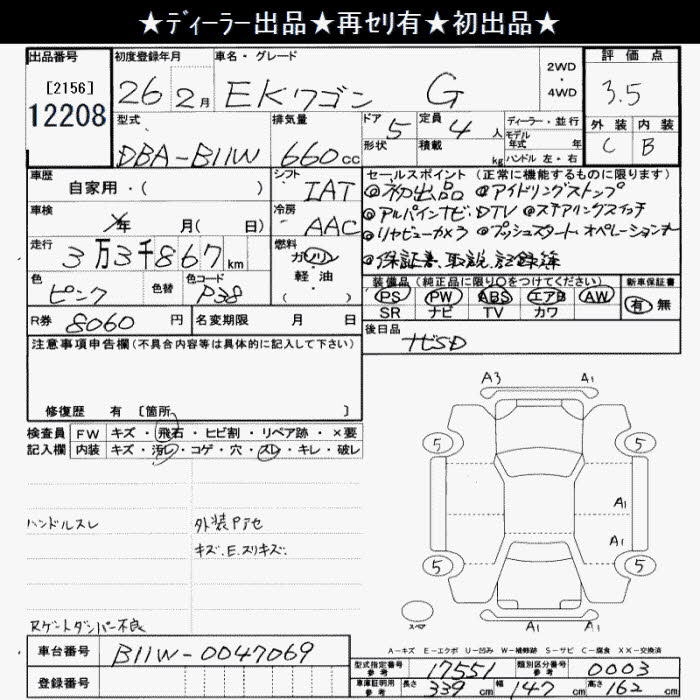 ★ディーラー出品★再セリ有★初出品★
出品番号 初度登録年月 車名・グレード 評価点
[2156] 12208
26 2月 EKワゴン G 2WD・4WD 3.5
型式 排気量 ドア 5 定員 4人 ディーラー・並行 外装 内装
DBA-B11W 660cc 形状 積載 kg モデル年式 年 C B
ハンドル 左・右
車歴 シフト セールスポイント(正常に機能するものに限ります)
自家用・( ) IAT ◎初出品 ◎アイドリングストップ
車検 年 月( 日) 冷房 AAC ◎アルパインナビ、DTV ◎ステアリングスイッチ
走行 3万3千867km 燃料 ガソリン・軽・油 ( ) ◎リヤビューカメラ ◎プッシュスタート、オペレーションキ
◎保証書、取説、記録簿
色 ピンク 色替 色コード P38 装備品(純正品に限り○をつけてください) 新車保証書
PS PW ABS エアB AW 有 無
SR ナビ TV カワ
R券 8060円 名変期限 月 日 後日品
ナビSD
注意事項申告欄(不具合内容等は具体的に記入して下さい)
修復歴 有 [箇所 ]
検査員 FW キズ・飛石・ヒビ割・リペア跡・×要
記入欄 内装 キズ・汚レ・コゲ・穴・スレ・キレ・破レ
A3 A1
5 5
A1
ハンドルスレ 外装Pアセ
A1
キズ、E、スリキズ、
5 5
スペア
A1 A1
ラゲットダンパー不良
A-キズ E-エクボ U-凹み W-補修跡 S-サビ C-腐食 XX-交換済
車台番号 B11W-0047069 型式指定番号 参考 17551 類別区分番号 参考 0003
登録番号 車庫証明用 参考 長さ 339cm 幅 147cm 高さ 162cm